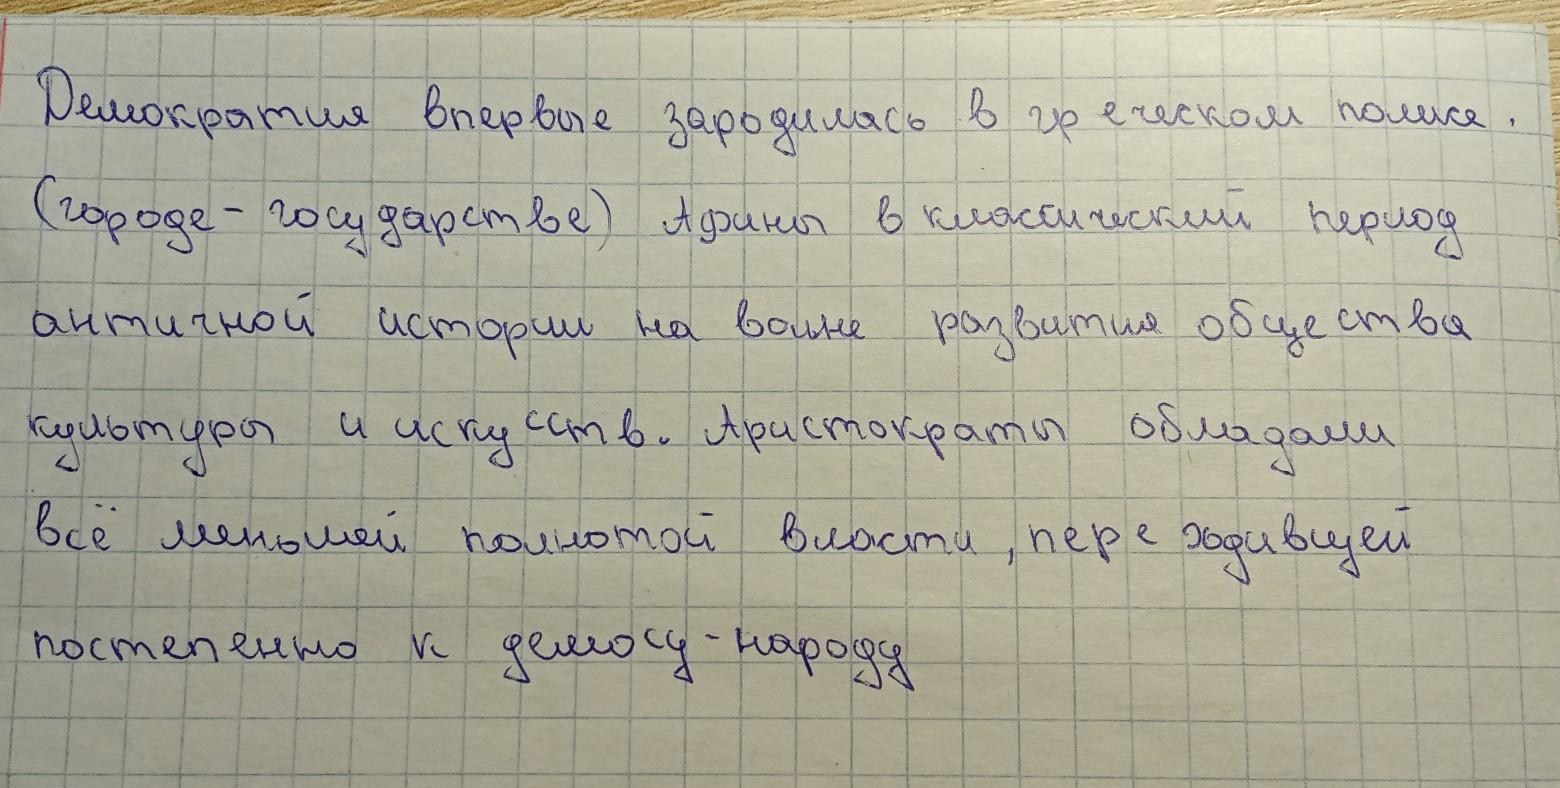 Демократия впервые зародилась в греческом полисе.
(городе-государстве) Афины в классический период
античной истории на волне развития общества
культуры и искусств. Аристократы обладали
всё меньшей полнотой власти, переходившей
постепенно к демосу-народу